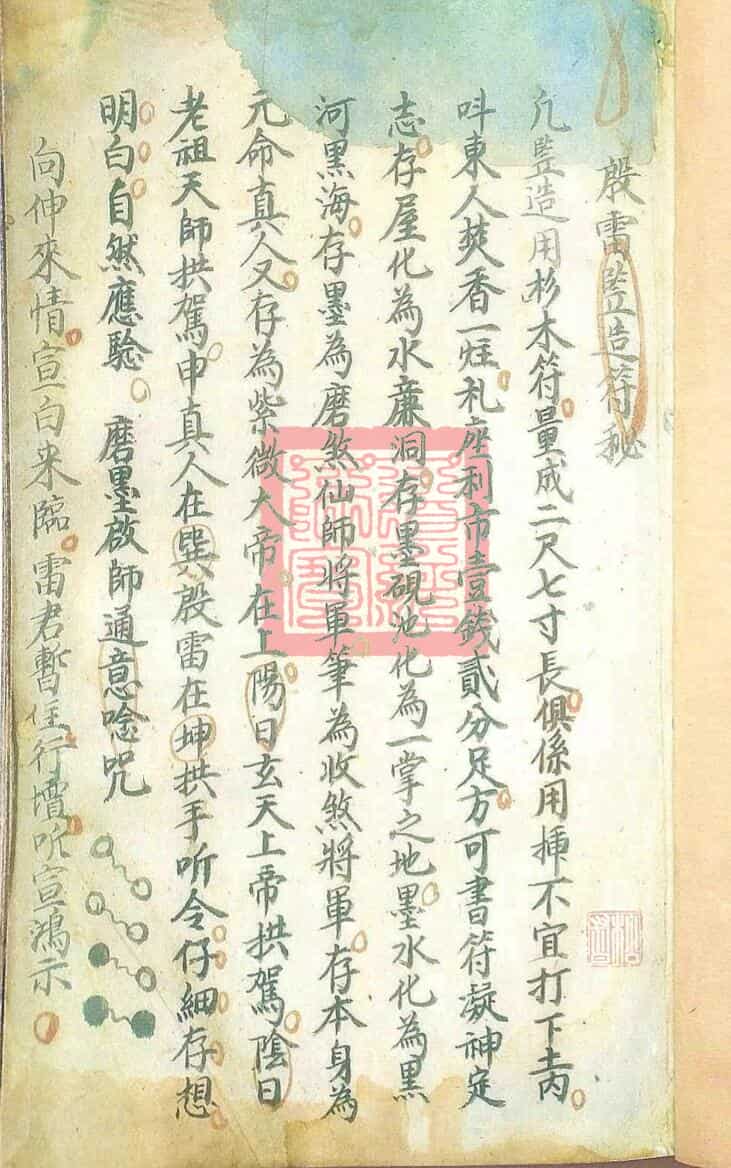 殷雷竪造符秘
凡竪造用杉木符量成二尺七寸長俱係用挿不宜打下土内
呌東人焚香一炷札座利市壹銭貳分足方可書符凝神定
志存屋化為水廉洞存墨硯池化為一掌之地墨水化為黒
河黒海存墨為磨煞仙師将軍筆為收煞將軍存本身為
元命真人又存為紫微大帝在上陽日玄天上帝拱駕陰日
老祖天師拱駕申真人在巽殷雷在坤拱手听令仔細存想
明白自然應驗 磨墨啟師通意唸咒
向伸來情宣白来臨雷君暫住行壇听宣鴻示